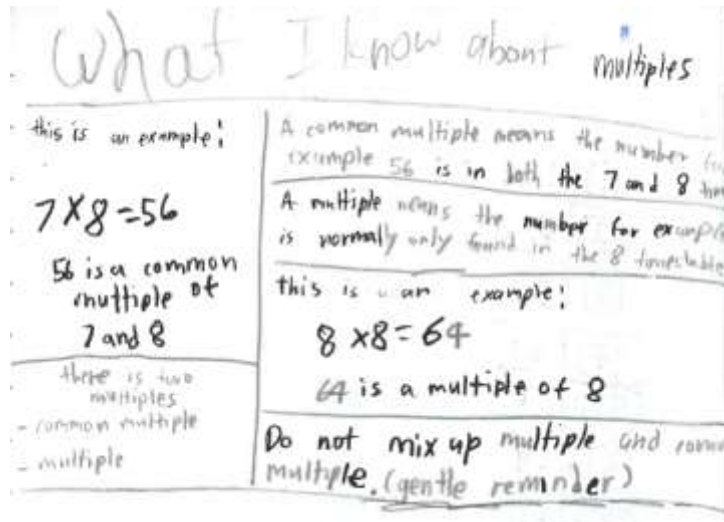 What I know about multiples
this is an example:
7 X 8 = 56
56 is a common
multiple of
7 and 8
there is two
multiples
- common multiple
- multiple
A common multiple means the number
example 56 is in both the 7 and 8
A multiple means the number for example
is normally only found in the 8 timestable
this is an example:
8 x 8 = 64
64 is a multiple of 8
Do not mix up multiple and
multiple. (gentle reminder)